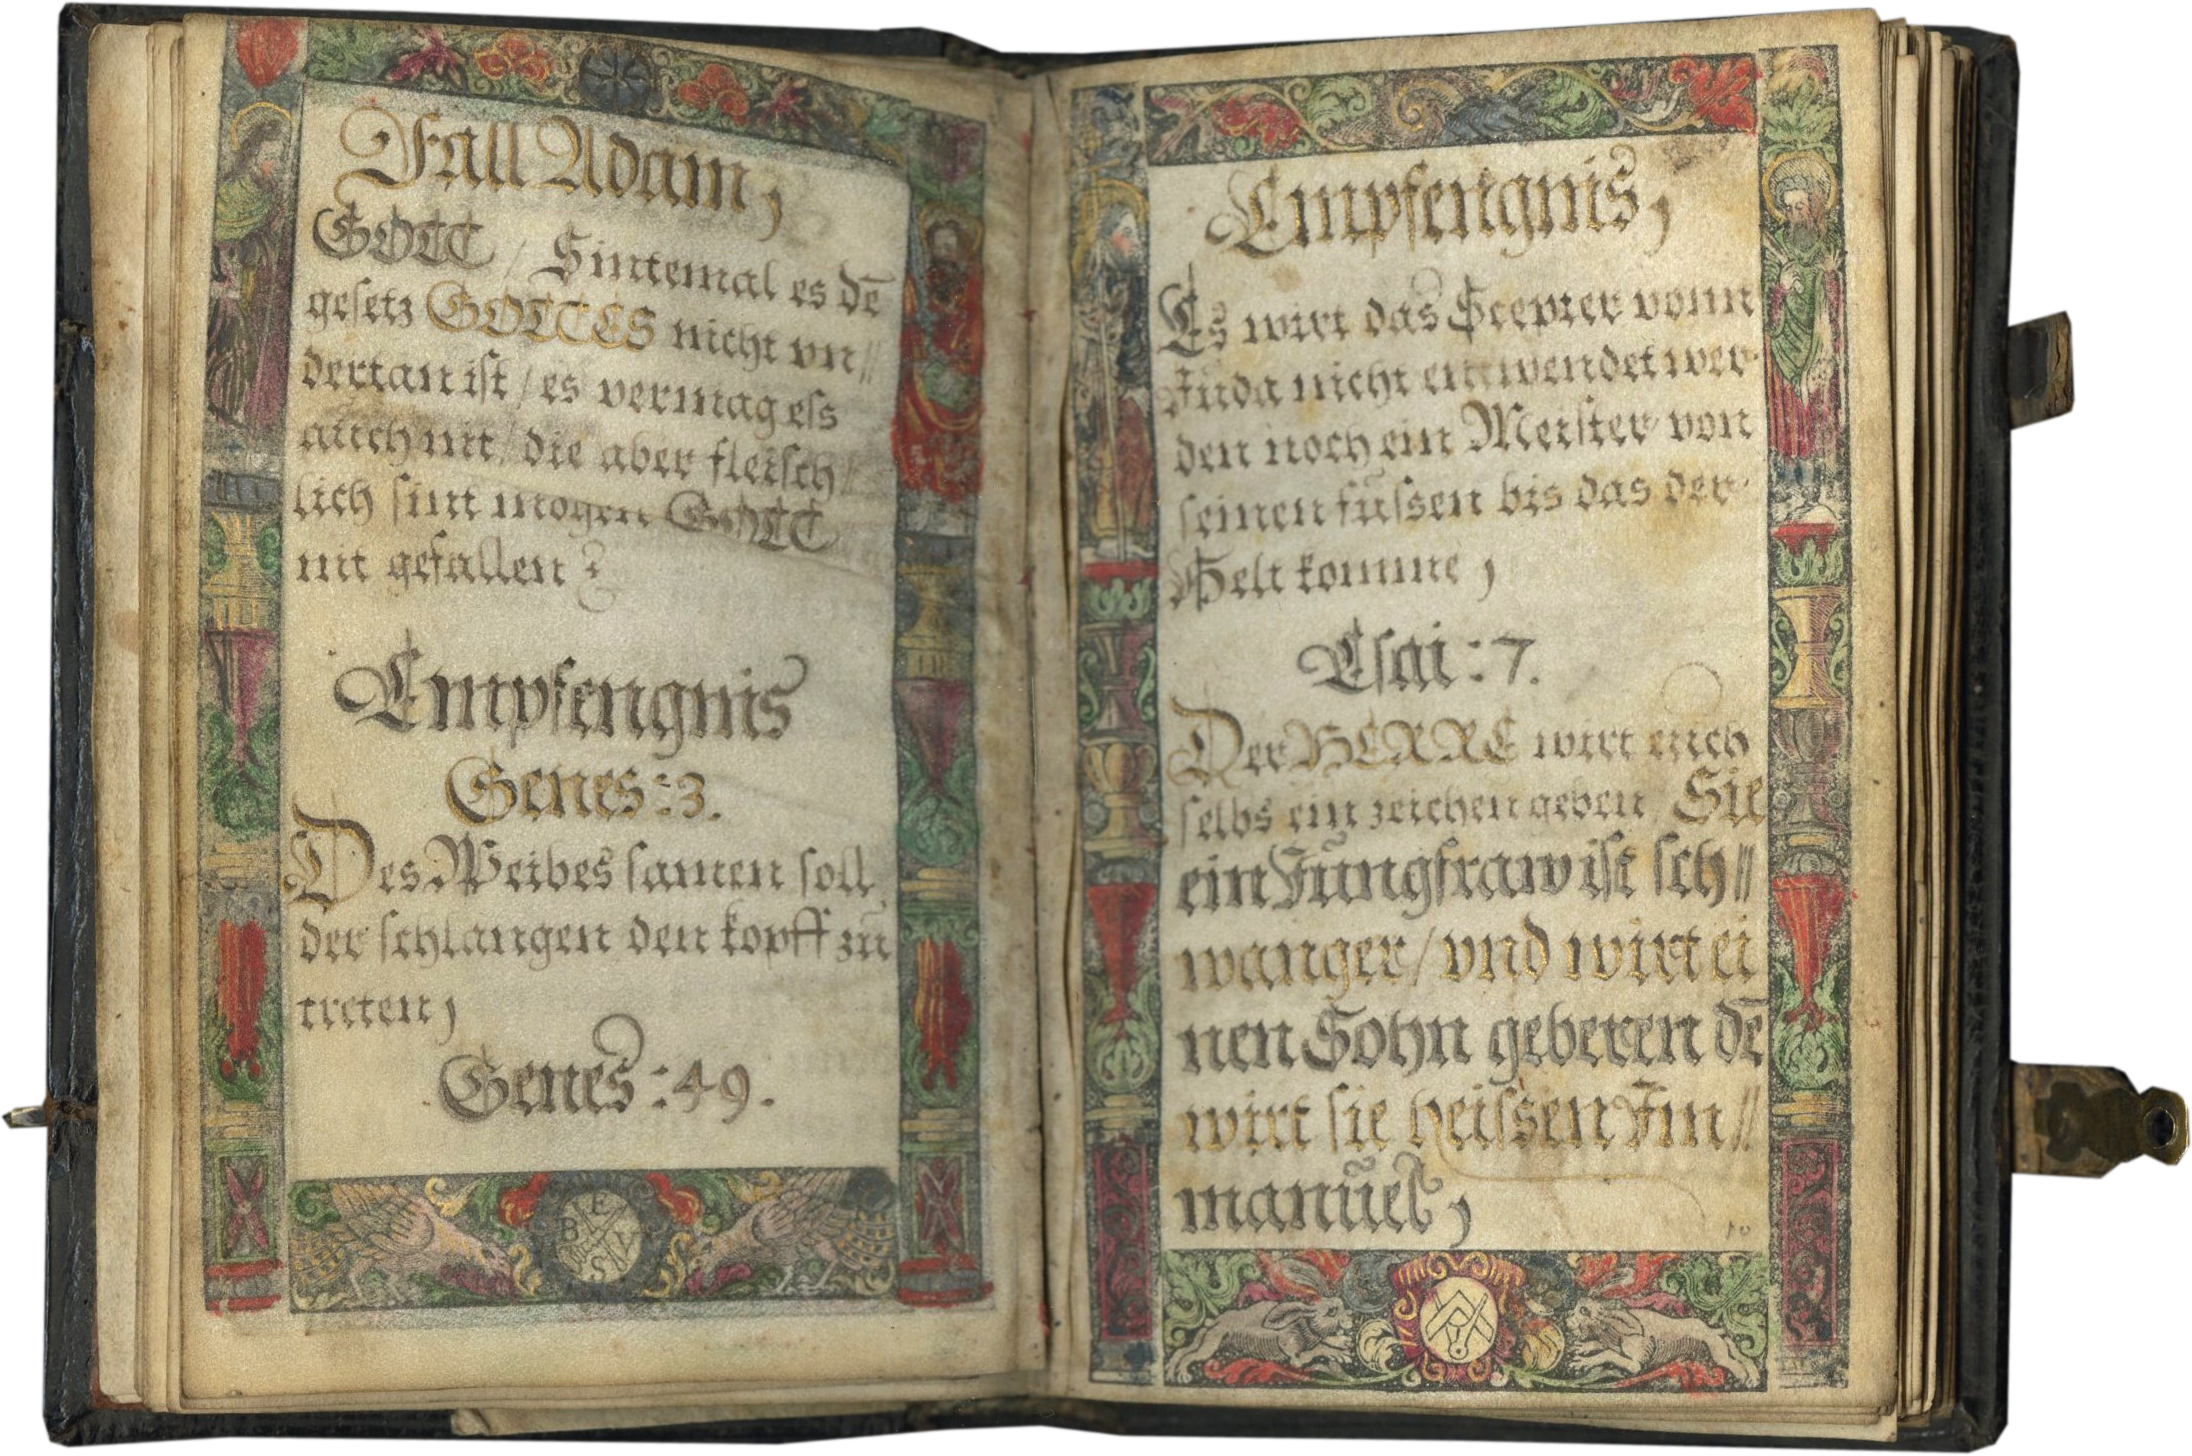 Fall Adam,
GOTT / Sintemal es dē
gesetz GOTTES nicht vn//
dertan ist / es vermag ess
auch nit / die aber fleisch//
lich sint mogen GOTT
nit gefallen
Empfengnis
Genes: 3.
Des Weibes samen soll
der schlangen den kopff zu
treten,
Genes: 49.
B E S V
Empfengnis,
Es wirt das Scepter vonn
Juda nicht entwendet wer
den noch ein Meister von
seinen fussen bis das der
Helt komme,
Esai: 7.
Der HERRE wirt euch
selbs ein zeichen geben Sie
ein Jungfraw ist sch//
wanger / vnd wirt ei
nen Sohn geberen dē
wirt sie heissen Im//
manuel,
10